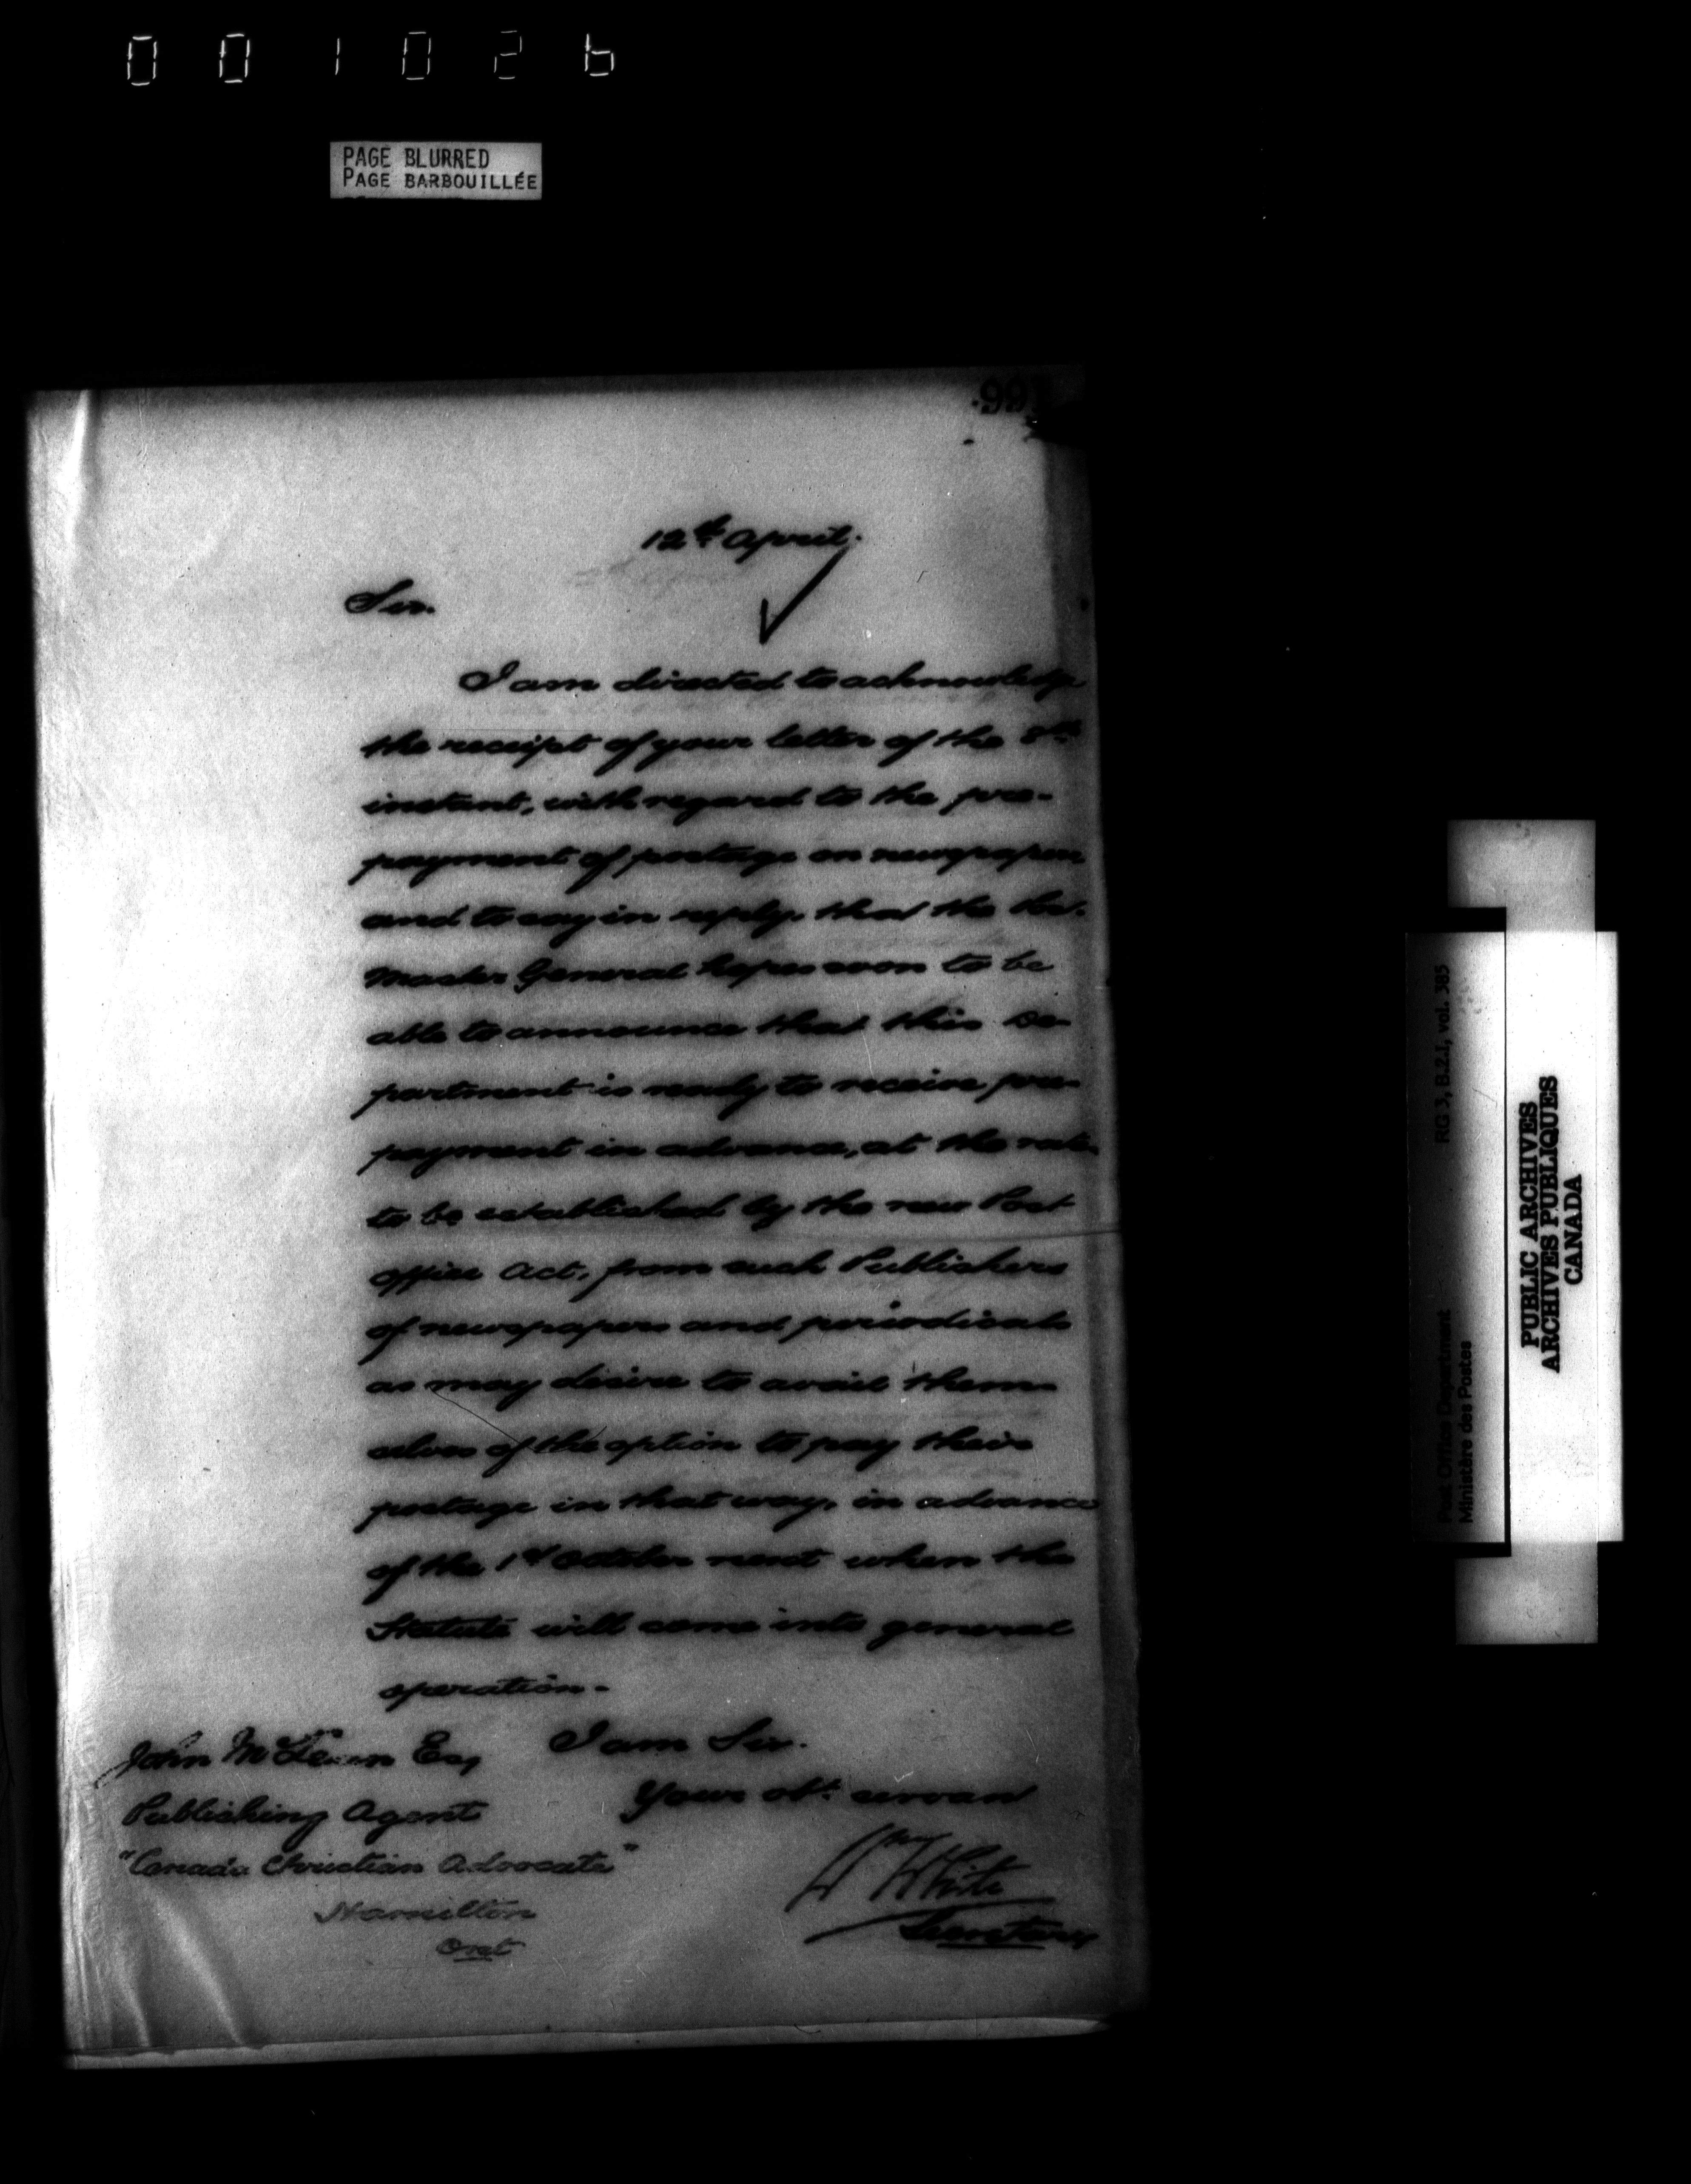 001026
PAGE BLURRED
PAGE BARBOUILLÉE
12th April.
Sir.
I am directed to acknowledge
the receipt of your letter of the 8th
instant, with regard to the pre-
payment of postage on newspapers
and to say in reply that the Post
Master General hopes soon to be
able to announce that this De-
partment is ready to receive pre-
payment in advance, at the rates
to be established by the new Post
office Act, from such Publishers
of newspapers and periodicals
as may desire to avail them-
selves of the option to pay their
postage in that way, in advance
of the 1st October next when the
Statute will come into general
operation.
I am Sir.
Your obt. servant
Wm White
Secretary
John Esq
Publishing Agent
"Canada Christian Advocate"
Hamilton
Ont
RG 3, B.2.1, vol. 385
Post Office Department
Ministère des Postes
PUBLIC ARCHIVES
ARCHIVES PUBLIQUES
CANADA